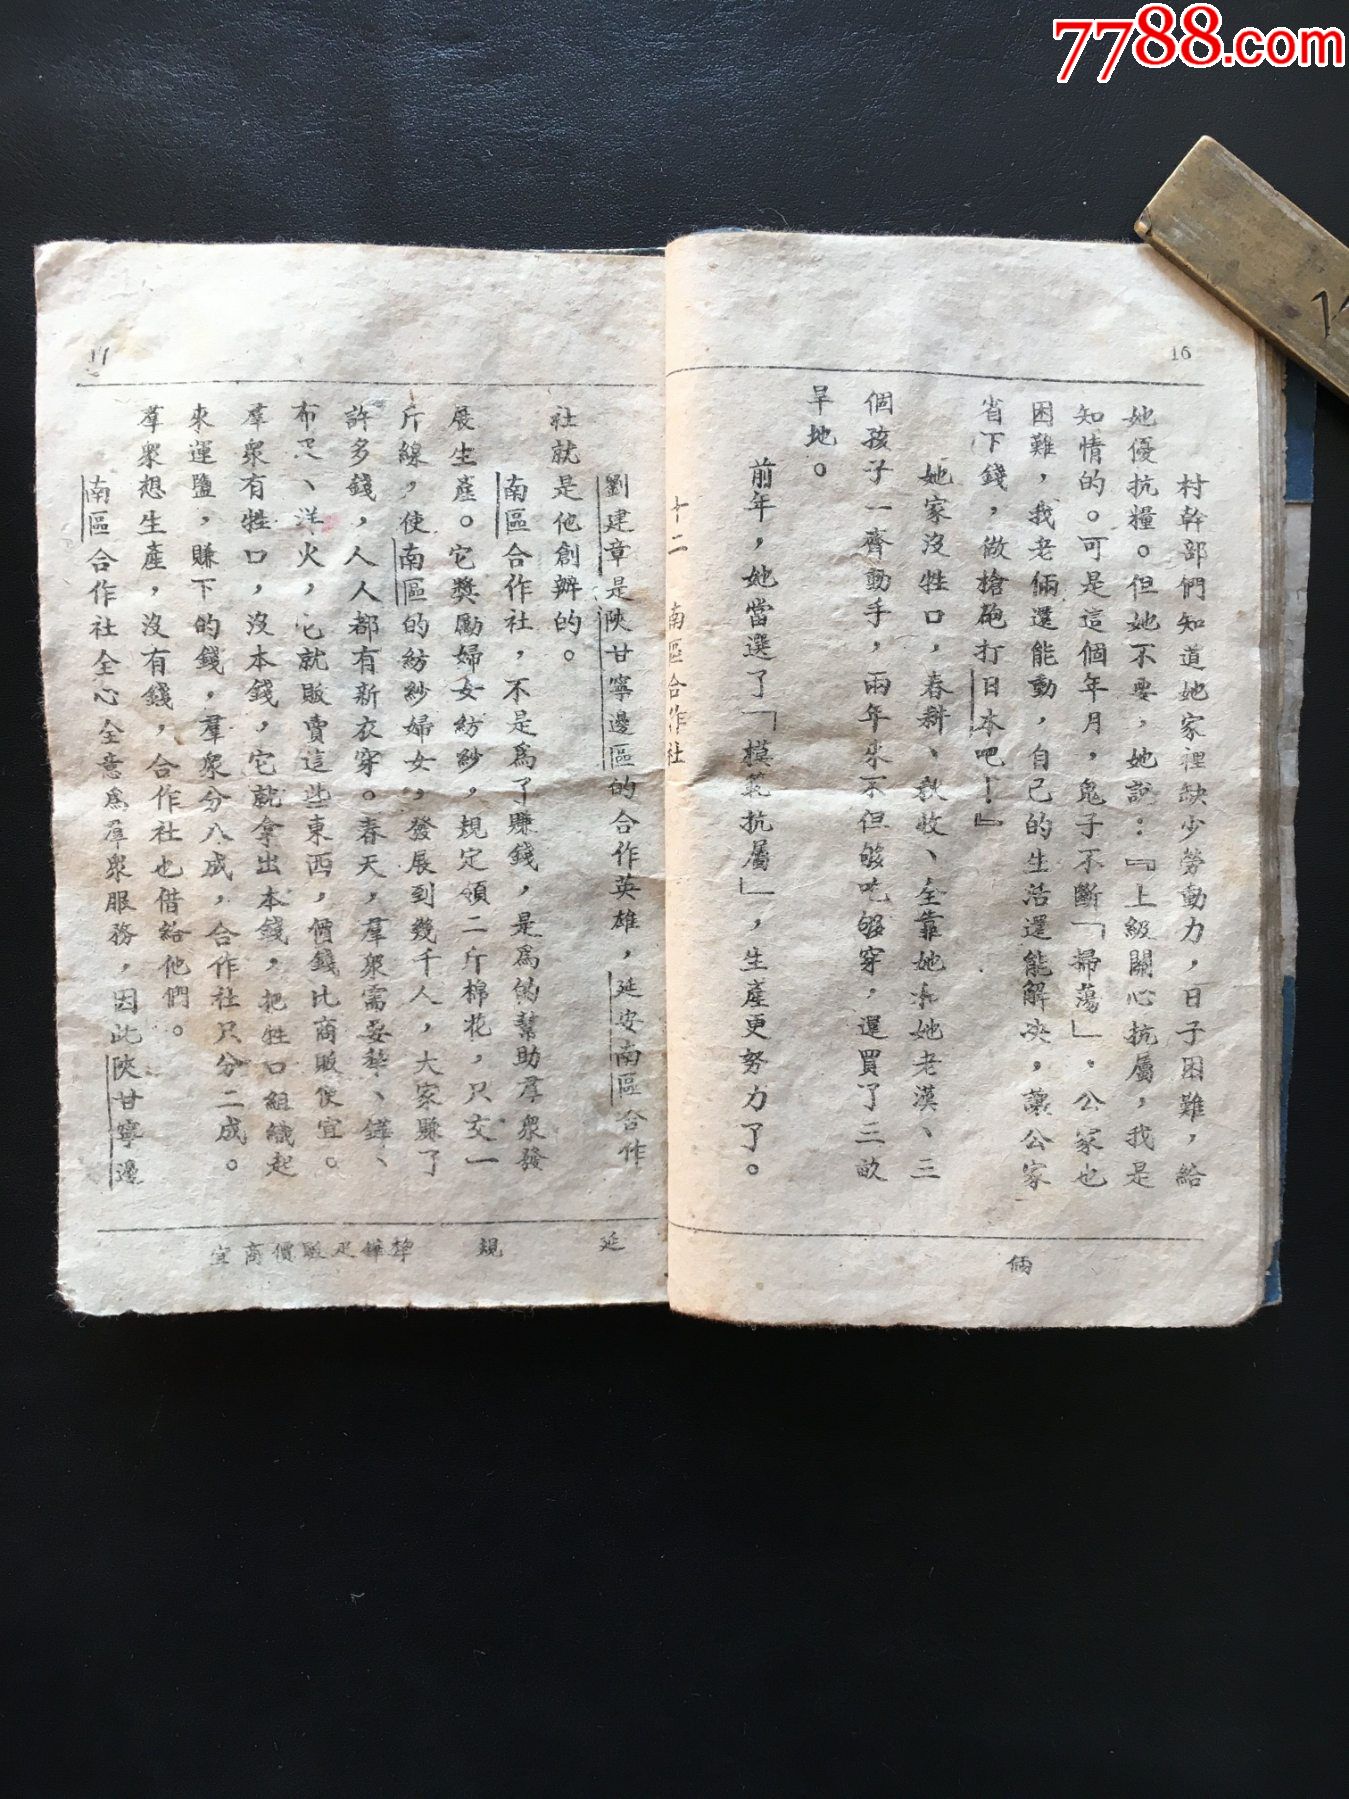 7788.com
16
村幹部們知道她家裡缺少勞動力，日子困難，給
她優抗糧。但她不要，她說：『上級關心抗屬，我是
知情的。可是這個年月，鬼子不斷「掃蕩」，公家也
困難，我老倆還能動，自己的生活還能解决，讓公家
省下錢，做槍砲打日本吧！』
她家沒牲口，春耕、秋收、全靠她和她老漢、三
個孩子一齊動手，兩年來不但够吃够穿，還買了三畝
旱地。
前年，她當選了「模範抗屬」，生產更努力了。
倆
十二 南區合作社
17
劉建章是陝甘寧邊區的合作英雄，延安南區合作
社就是他創辦的。
南區合作社，不是爲了賺錢，是爲的幫助羣衆發
展生產。它獎勵婦女紡紗，規定領二斤棉花，只交一
斤線，使南區的紡紗婦女，發展到幾千人，大家賺了
許多錢，人人都有新衣穿。春天，羣衆需要犂、鏵、
布疋、洋火，它就販賣這些東西，價錢比商販便宜。
羣衆有牲口，沒本錢，它就拿出本錢，把牲口組織起
來運鹽，賺下的錢，羣衆分八成，合作社只分二成。
羣衆想生產，沒有錢，合作社也借給他們。
南區合作社全心全意爲羣衆服務，因此陝甘寧邊
延 規 犂鏵疋販價商宜